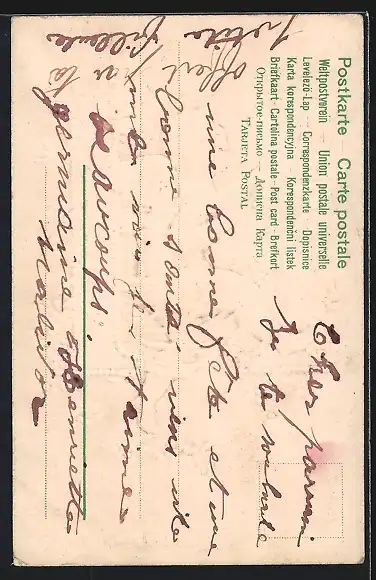 Postkarte — Carte postale
Weltpostverein — Union postale universelle
Levelező-Lap — Correspondenzkarte — Dopisnice
Karta korespondencyjna — Korespondenční lístek
Briefkaart - Cartolina postale - Post card - Brefkort
Открытое письмо — Дописна Карта
TARJETA POSTAL
Cher parrain
Je te souhaite
une bonne fête et une
bonne santé viens vite
nous voir je t'aime
beaucoup
Germaine Henriette
ta petite
filleule